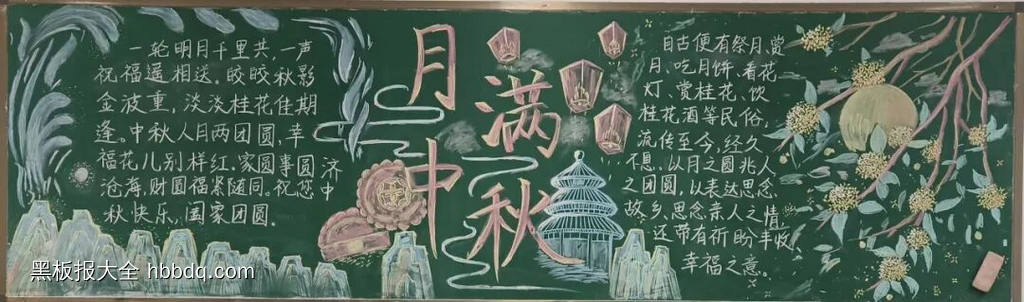 一轮明月千里共，一声
祝福遥相送。皎皎秋影
金波重，淡淡桂花佳期
逢。中秋人月两团圆，幸
福花儿别样红。家圆事圆济
沧海，财圆福禄随同。祝您中
秋快乐，国家团圆。
月满
中秋
自古便有祭月、赏
月、吃月饼、看花
灯、赏桂花、饮
桂花酒等民俗，
流传至今，经久
不息。以月之圆兆人
之团圆，以表达思念
故乡、思念亲人之情
还带有祈盼丰收、
幸福之意。
黑板报大全 hbbdq.com